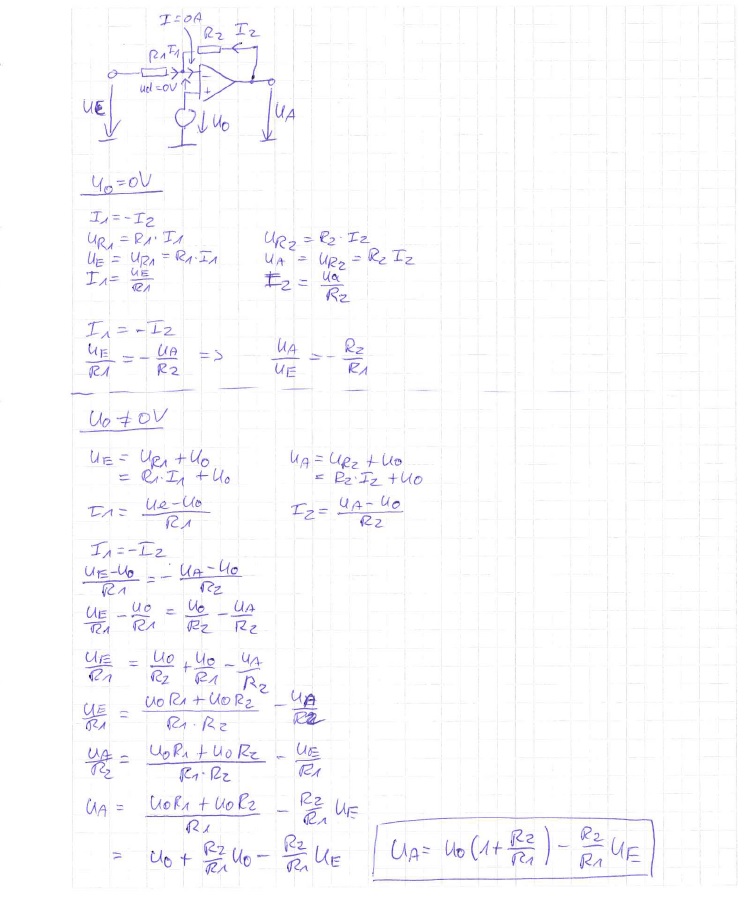 I=0A
R2 I2
R1 I1
ud=0V
-
+
UE
U0
UA
U0=0V
I1=-I2
UR1=R1·I1 UR2=R2·I2
UE=UR1=R1·I1 UA=UR2=R2 I2
I1=UE/R1 I2=Ua/R2
I1=-I2
UE/R1=-UA/R2 => UA/UE=-R2/R1
U0≠0V
UE=UR1+U0 UA=UR2+U0
=R1·I1+U0 =R2·I2+U0
I1=(Ue-U0)/R1 I2=(UA-U0)/R2
I1=-I2
(UE-U0)/R1=-(UA-U0)/R2
UE/R1-U0/R1=U0/R2-UA/R2
UE/R1=U0/R2+U0/R1-UA/R2
UE/R1=(U0R1+U0R2)/(R1·R2)-UA/R2
UA/R2=(U0R1+U0R2)/(R1·R2)-UE/R1
UA=(U0R1+U0R2)/R1-R2/R1 UE
=U0+R2/R1 U0-R2/R1 UE
UA=U0(1+R2/R1)-R2/R1 UE